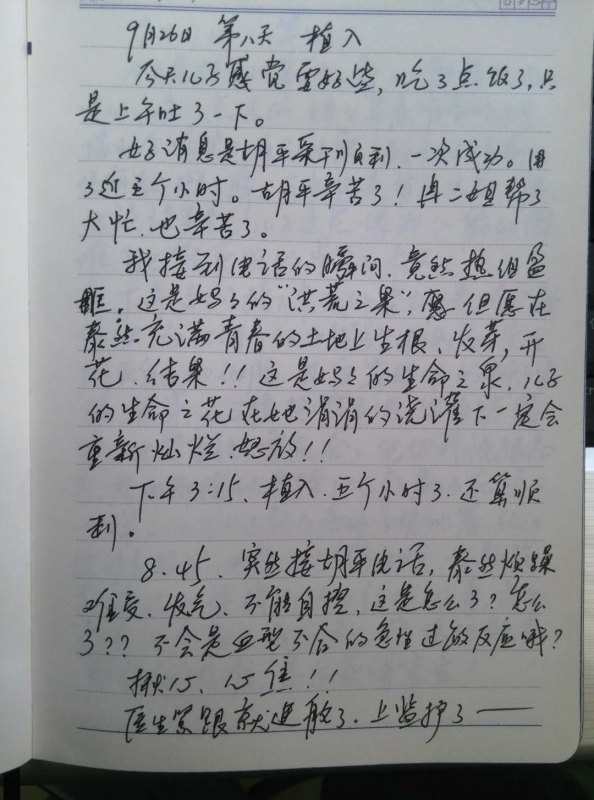 9月26日 第八天 植入
今天儿子感觉要好些,吃了点饭了,只
是上午吐了一下。
好消息是胡平采刊顺利,一次成功。用
了近五个小时。胡平辛苦了!冉二姐帮了
大忙,也辛苦了。
我接到电话的瞬间,竟然热泪盈
眶。这是妈妈的“洪荒之果”,但愿在
泰然充满青春的土地上生根、发芽,开
花、结果!!这是妈妈的生命之泉,儿子
的生命之花在她涓涓的浇灌下一定会
重新灿烂、怒放!!
下午3:15,植入.五个小时了.还算顺
利。
8.45.突然接胡平电话,泰然烦躁
难受、发气、不能自控,这是怎么了?怎么
了??不会是血型不合的急性过敏反应哦?
担心、心焦!!
医生紧跟就进舱了.上监护了——